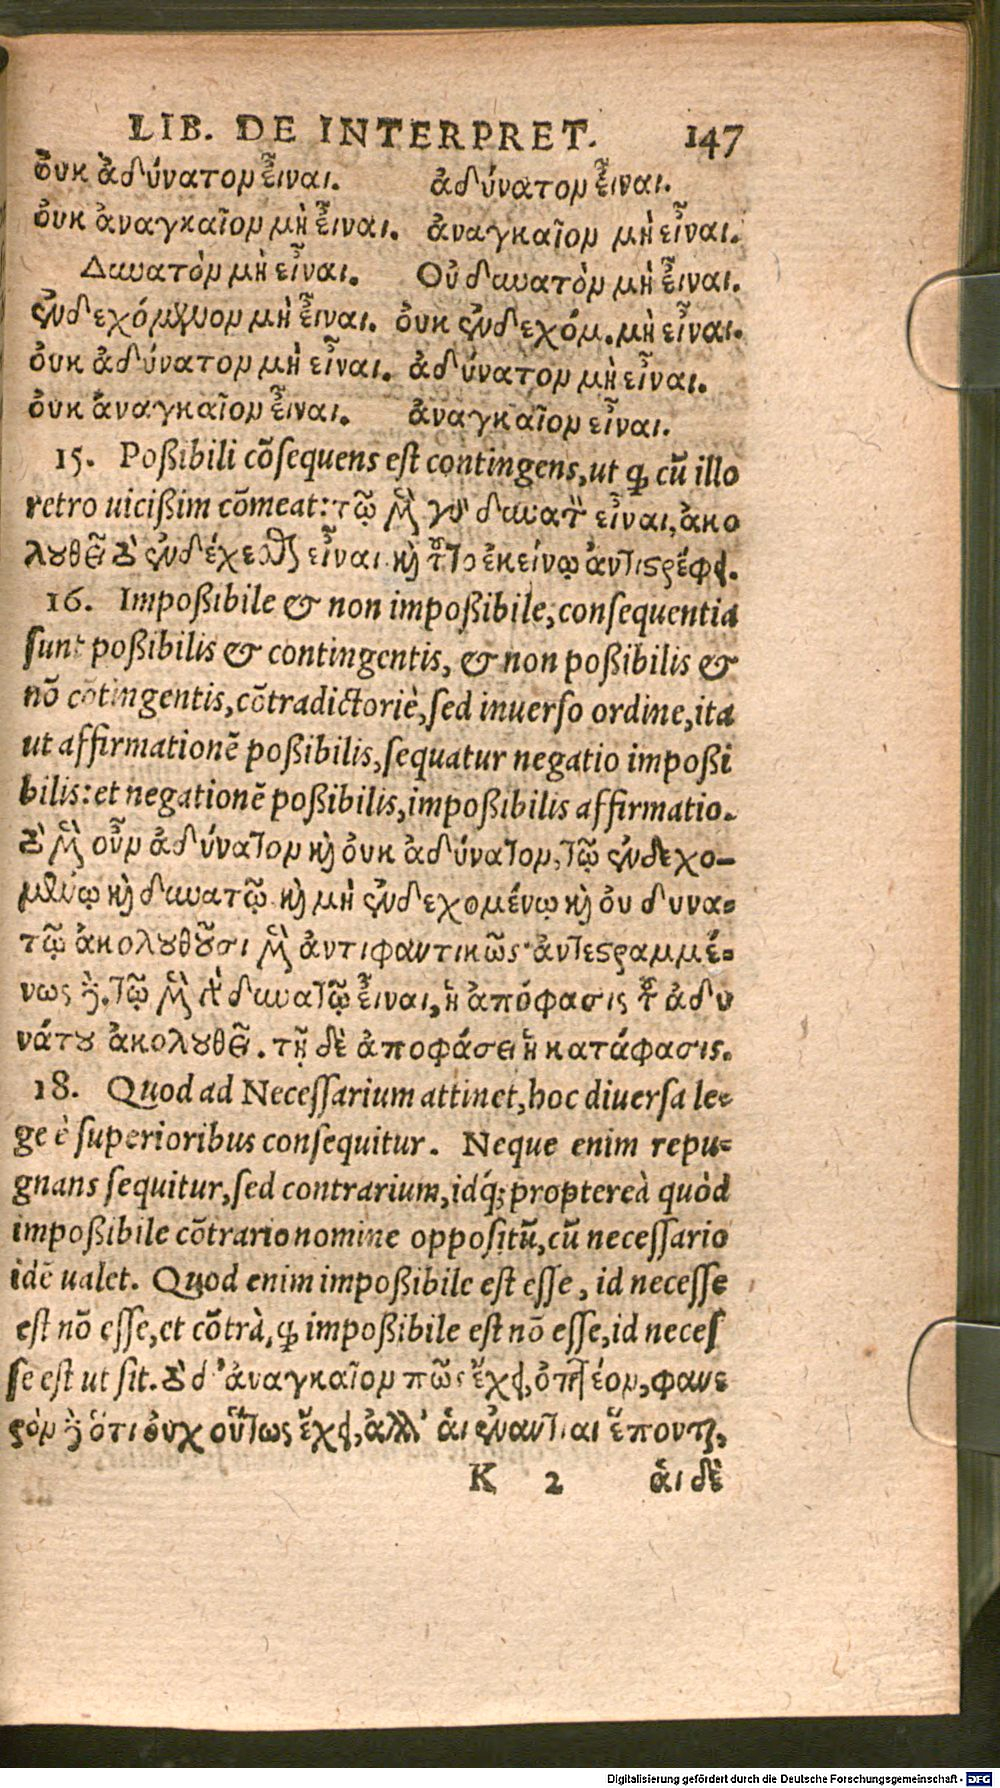 LIB. DE INTERPRET. 147
ὀυκ ἀδύνατον εἶναι. ἀδύνατον εἶναι.
ὀυκ ἀναγκαῖον μὴ εἶναι. ἀναγκαῖον μὴ εἶναι.
Δυνατὸν μὴ εἶναι. Οὐ δυνατὸν μὴ εἶναι.
ἐνδεχόμενον μὴ εἶναι. ὀυκ ἐνδεχόμ. μὴ εἶναι.
ὀυκ ἀδύνατον μὴ εἶναι. ἀδύνατον μὴ εἶναι.
ὀυκ ἀναγκαῖον εἶναι. ἀναγκαῖον εἶναι.
15. Poßibili cõsequens est contingens, ut q̃ cũ illo
retro uicißim cõmeat: τῷ μὲν γὰρ δυνατὸν εἶναι, ἀκο
λουθεῖ τὸ ἐνδέχεσθαι εἶναι καὶ τοῦτο ἐκείνῳ ἀντιστρέφει.
16. Impoßibile & non impoßibile, consequentia
sunt poßibilis & contingentis, & non poßibilis &
nõ cõtingentis, cõtradictoriè, sed inuerso ordine, ita
ut affirmationẽ poßibilis, sequatur negatio impoßi
bilis: et negationẽ poßibilis, impoßibilis affirmatio.
τὸ μὲν οὖν ἀδύνατον καὶ ὀυκ ἀδύνατον, τῷ ἐνδεχο-
μένῳ καὶ δυνατῷ καὶ μὴ ἐνδεχομένῳ καὶ ὀυ δυνα-
τῷ ἀκολουθοῦσι μὲν ἀντιφαντικῶς· ἀντεστραμμέ-
νως δέ. τῷ μὲν γὰρ δυνατῷ εἶναι, ἡ ἀπόφασις τοῦ ἀδυ
νάτου ἀκολουθεῖ. τῇ δὲ ἀποφάσει ἡ κατάφασις.
18. Quod ad Necessarium attinet, hoc diuersa le-
ge è superioribus consequitur. Neque enim repu-
gnans sequitur, sed contrarium, idq́; proptereà quòd
impoßibile cõtrario nomine oppositũ, cũ necessario
idẽ ualet. Quod enim impoßibile est esse, id necesse
est nõ esse, et cõtrà, q̃ impoßibile est nõ esse, id neces
se est ut sit. τὸ δ' ἀναγκαῖον πῶς ἔχει, ὀπτέον, φανε
ρὸν δὲ ὅτι ὀυχ οὕτως ἔχει, ἀλλ' ἁι ἐναντίαι ἕπονται,
K 2 ἁι δὲ
Digitalisierung gefördert durch die Deutsche Forschungsgemeinschaft - DFG